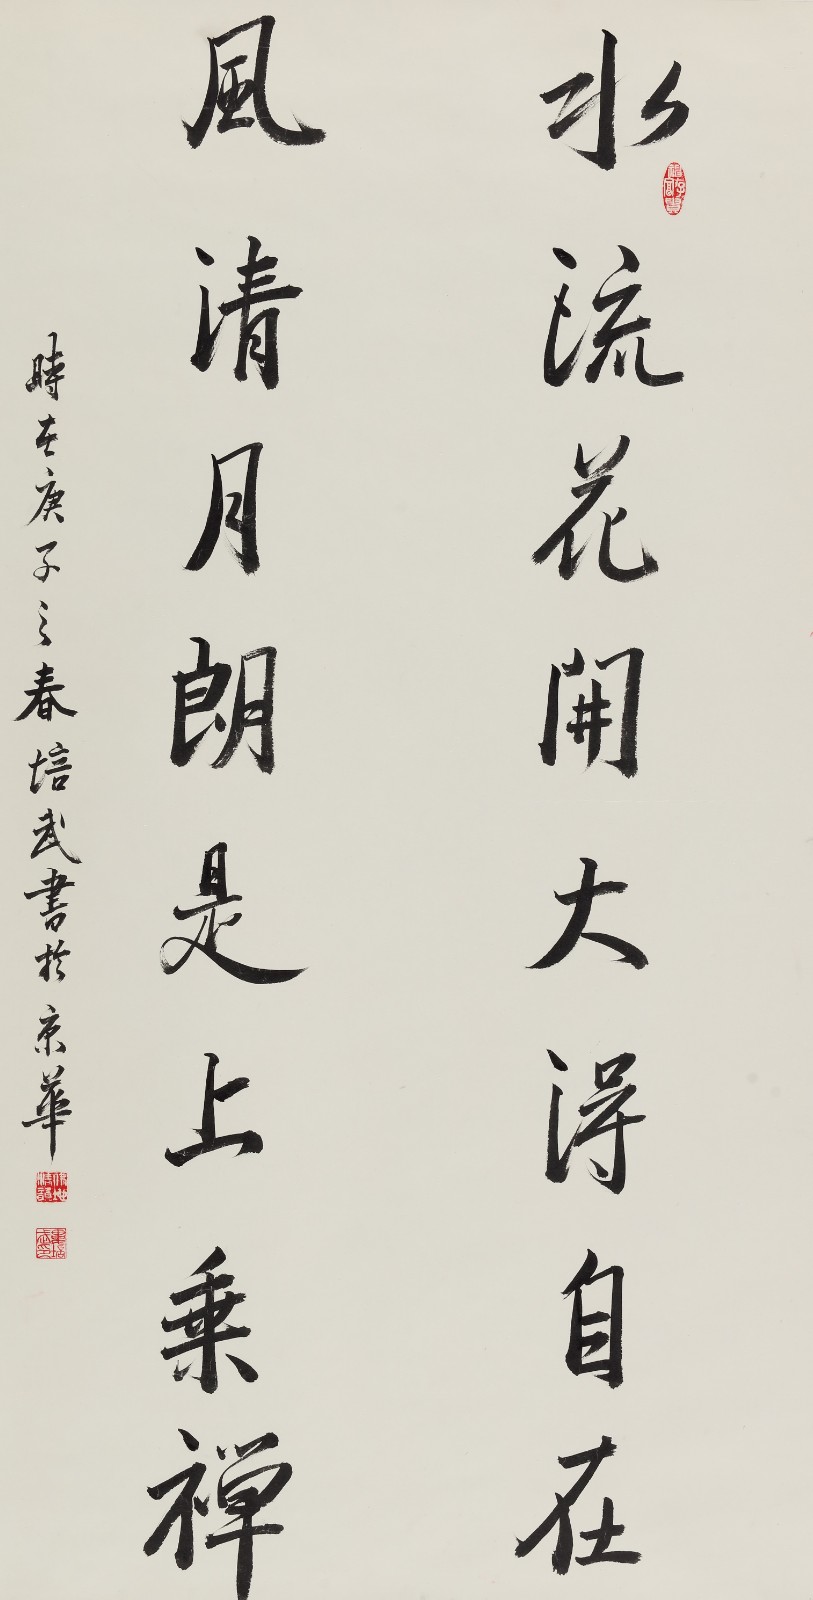 水流花開大得自在
風清月朗是上乘禪
時在庚子之春培武書於京華